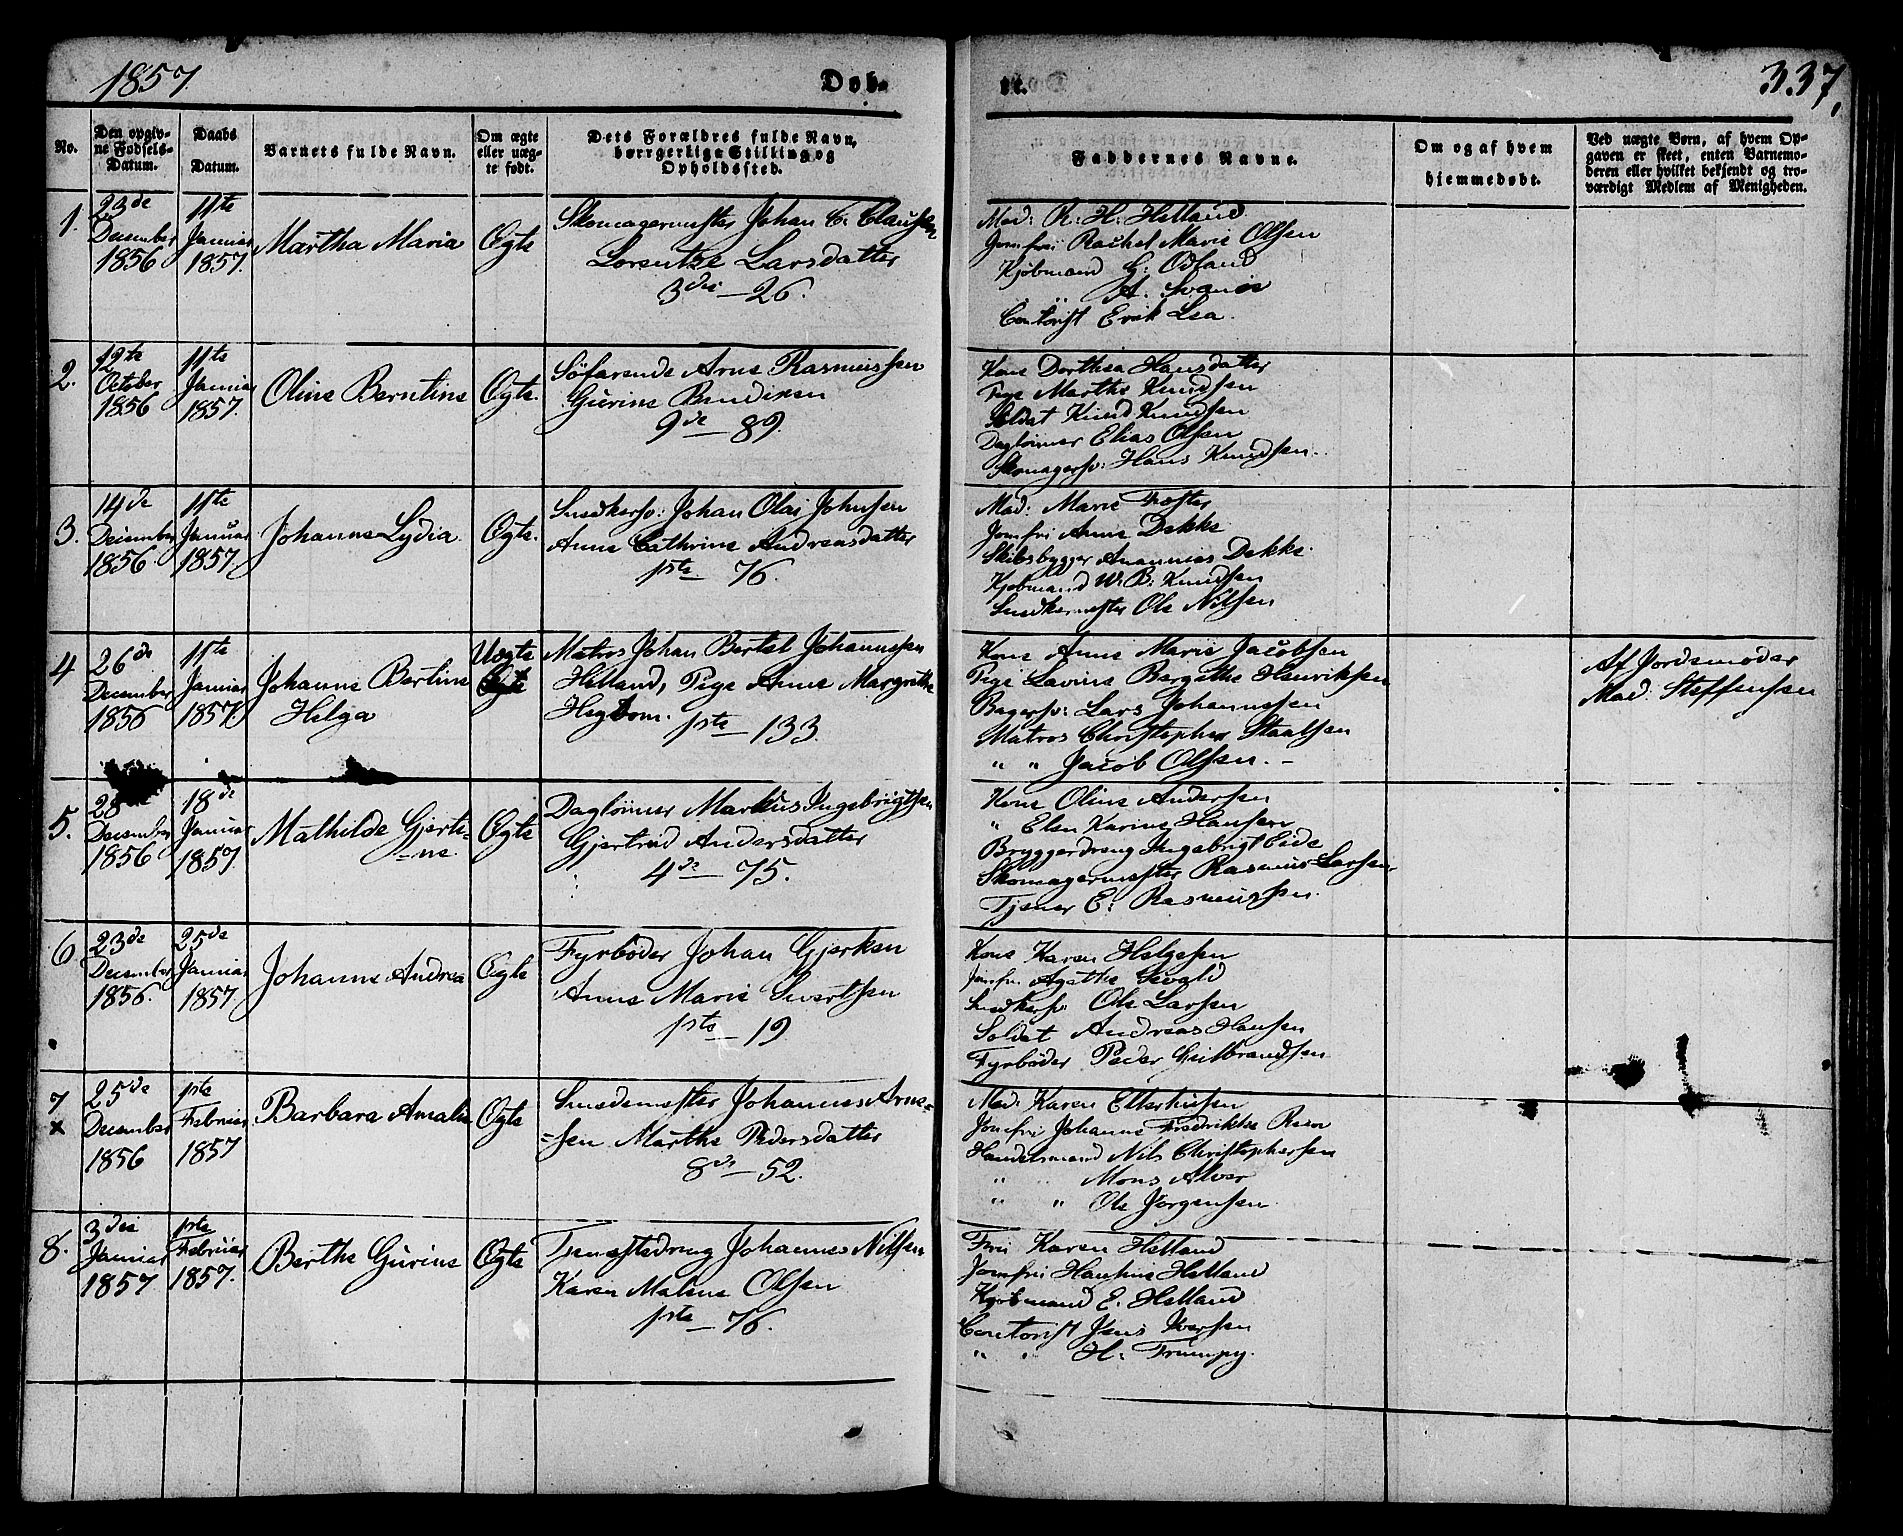 1857. Døb-
te. 337,
No.
Den opgiv-
ne Fødsels-
Datum.
Daabs
Datum.
Varnets fulde Navn.
Om ægte
eller uæg-
te født.
Dets Forældres fulde Navn,
borgerlige Stilling og
Opholdssted.
Faddernes Navne.
Om og af hvem
hjemmedøbt.
Ved uægte Børn, af hvem Op-
gaven er skeet, enten Barnemo-
deren eller hvilket bekjendt og tro-
værdigt Medlem af Menigheden.
1.
23de
December
1856
11te
Januar
1857.
Martha Maria
Ægte
Skomagermester Johan C. Clausen
Lorentze Larsdatter
3die — 26.
Mad: R: H: Helland
Jomfru Rachel Marie Olsen
Kjøbmand G: Odland
" A. Svanøe
Contorist Erik Lea.
2.
12te
October
1856
11te
Januar
1857.
Oline Berntine
Ægte.
Søfarende Arne Rasmussen
Gurine Bendixen
9de — 89.
Kone Dorthea Hansdatter
Pige Marthe Knudsen
Soldat Knud Knudsen
Dagløner Elias Olsen
Skomagersv: Hans Knudsen.
3.
14de
December
1856
11te
Januar
1857.
Johanne Lydia
Ægte.
Snedkersv: Johan Olai Johnsen
Anne Cathrine Andreasdatter
1ste — 76.
Mad: Marie Foster
Jomfru Anne Dekke
Skibsbygger Anannias Dekke.
Kjøbmand W. B. Knudsen
Snedkermester Ole Nilsen
4
26de
December
1856
11te
Januar
1857.
Johanne Bertine
Helga
Uægte
Ægte
Matros Johan Bertel Johannessen
Helland, Pige Anne Margrethe
Hegbom. 1ste — 133.
Kone Anne Marie Jacobsen
Pige Lavine Bergithe Henriksen
Bagersv: Lars Johannessen
Matros Christopher Staalsen
" " Jacob Olsen. –
Af Jordemoder
Mad. Steffensen
5.
28
December
1856
18de
Januar
1857.
Mathilde Gjerti-
=ne.
Ægte
Dagløner Markus Ingebrigtsen
Gjertrud Andersdatter
4de — 75.
Kone Oline Andersen
" Elen Karine Hansen
Bryggerdreng Ingebrigt Eide
Skomagermester Rasmus Larsen
Tjener E: Rasmussen.
6.
23de
December
1856.
25de
Januar
1857.
Johanne Andrea
Ægte
Fyrbøder Johan Gjerken
Anne Marie Sivertsen
1ste — 19
Kone Karen Helgesen
Jomfru Agathe
Snedkersv: Ole Larsen
Soldat Andreas Hansen
Fyrbøder Peder Gulbrandsen
7
x
25de
December
1856
1ste
Februar
1857
Barbara Amalia
Ægte
Smedemester Johannes Arne=
=sen Marthe Pedersdatter
8de — 52.
Mad: Karen Etterhusen
Jomfru Johanne Fredrikke
Handelsmand Nils Christophersen
" " Mons Alver
" " Ole Jørgensen
8.
3die
Januar
1857
1ste
Februar
1857.
Berthe Gurine
Ægte
Johannes Nilsen
Karen Malene Olsen
1ste — 76.
Fru Karen Helland
Jomfru Hansine Helland
Kjøbmand E. Helland
Contorist Jens Iversen
" " H: Trumpy.